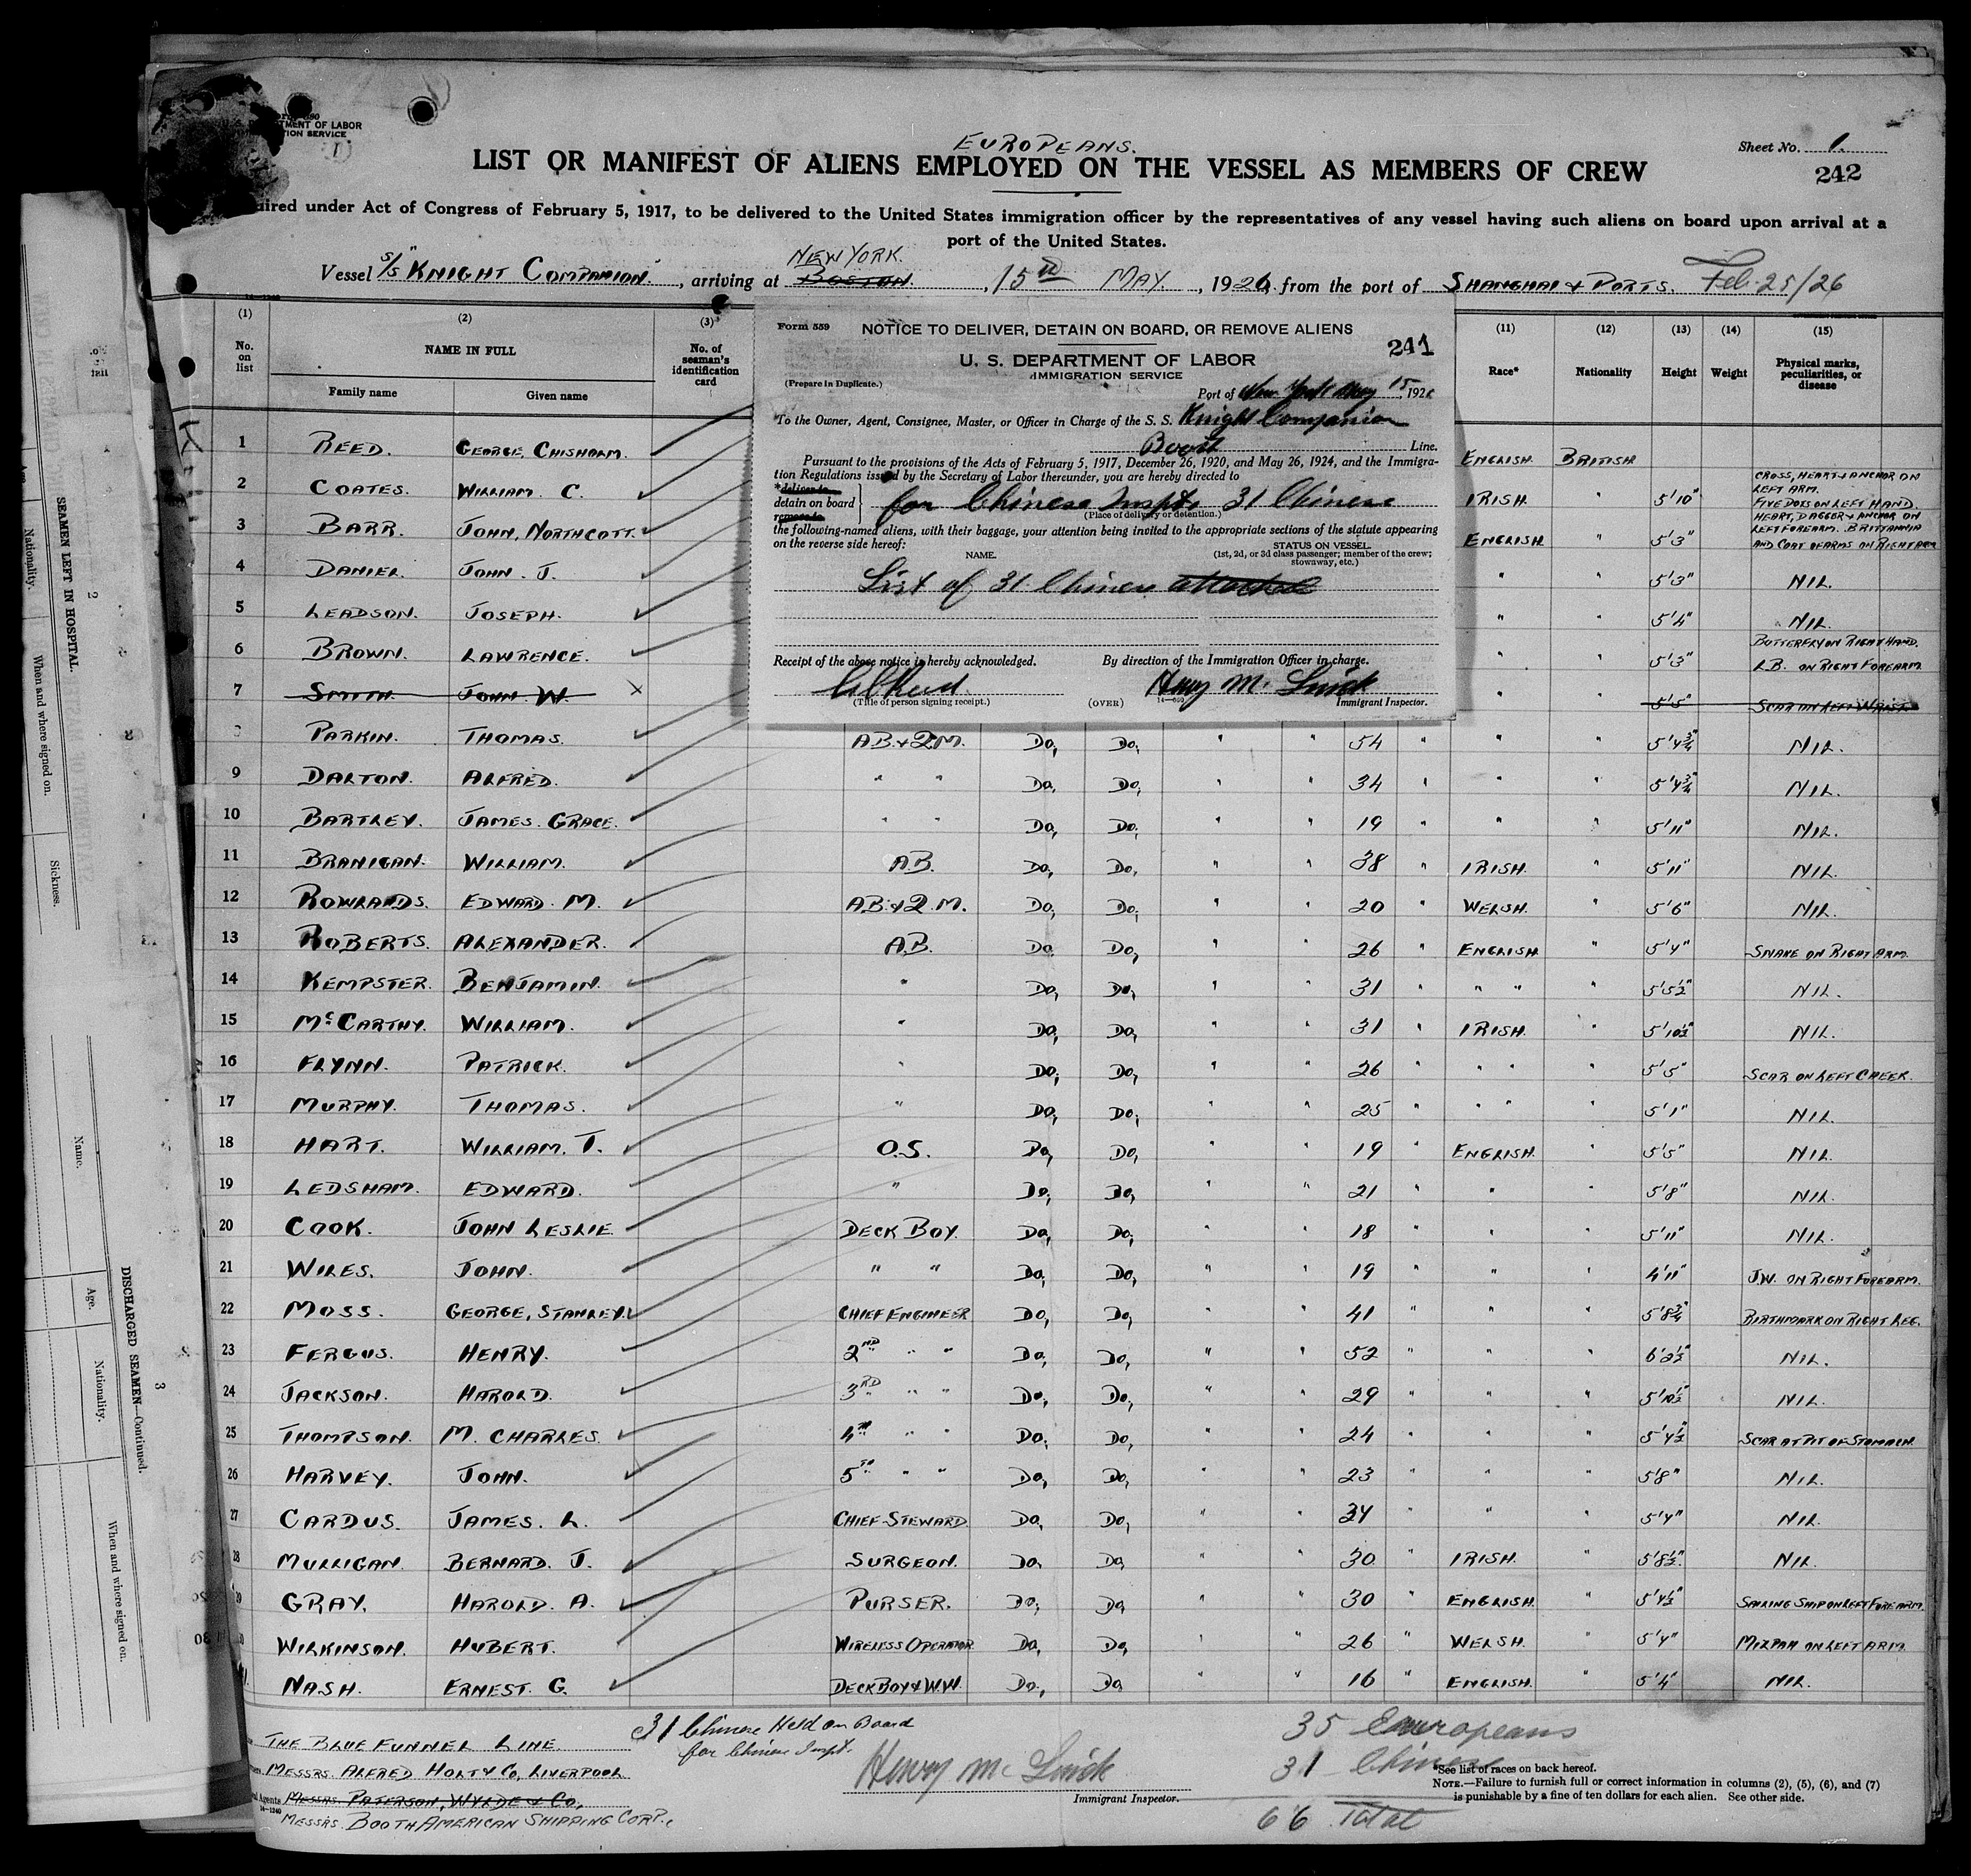 U. S. DEPARTMENT OF LABOR
IMMIGRATION SERVICE
EUROPEANS.
Sheet No. 1.
LIST OR MANIFEST OF ALIENS EMPLOYED ON THE VESSEL AS MEMBERS OF CREW
242
uired under Act of Congress of February 5, 1917, to be delivered to the United States immigration officer by the representatives of any vessel having such aliens on board upon arrival at a
port of the United States.
Vessel S/S "KNIGHT COMPANION", arriving at BOSTON. NEW YORK., 15th MAY, 1926, from the port of SHANGHAI & PORTS. Feb. 25/26
(1) (2) (3) (11) (12) (13) (14) (15)
No. on list NAME IN FULL No. of seaman's identification card Race* Nationality Height Weight Physical marks, peculiarities, or disease
Family name Given name
Form 559 NOTICE TO DELIVER, DETAIN ON BOARD, OR REMOVE ALIENS
241
U. S. DEPARTMENT OF LABOR
(Prepare in Duplicate.) IMMIGRATION SERVICE
Port of New York May 15, 1926
To the Owner, Agent, Consignee, Master, or Officer in Charge of the S. S. Knight Companion
Booth Line.
Pursuant to the provisions of the Acts of February 5, 1917, December 26, 1920, and May 26, 1924, and the Immigra-
tion Regulations issued by the Secretary of Labor thereunder, you are hereby directed to
*deliver to
detain on board for Chinese Inspt. 31 Chinese
remove to (Place of delivery or detention.)
the following-named aliens, with their baggage, your attention being invited to the appropriate sections of the statute appearing
on the reverse side hereof:
NAME. STATUS ON VESSEL.
(1st, 2d, or 3d class passenger; member of the crew;
stowaway, etc.)
List of 31 Chinese attached
Receipt of the above notice is hereby acknowledged. By direction of the Immigration Officer in charge.
Henry M.
(Title of person signing receipt.) (OVER) Immigrant Inspector.
1 REED. GEORGE, CHISHOLM. ENGLISH. BRITISH
2 COATES. WILLIAM. C. IRISH. " 5'10" CROSS, HEART & ANCHOR ON LEFT ARM. FIVE DOTS ON LEFT HAND.
3 BARR. JOHN, NORTHCOTT. ENGLISH. " 5'3" HEART, DAGGER & ANCHOR ON LEFT FOREARM. BRITTANNIA AND COAT OF ARMS ON RIGHT ARM
4 DANIEL. JOHN. J. " " 5'3" NIL.
5 LEADSON. JOSEPH. " " 5'4" NIL.
6 BROWN. LAWRENCE. " " 5'3" BUTTERFLY ON RIGHT HAND. L.B. ON RIGHT FOREARM
7 SMITH. JOHN. W. X " " 5'5" SCAR ON LEFT WRIST
PARKIN. THOMAS. A.B. & Q.M. Do, Do, " " 54 " " " 5'4¾" NIL.
9 DALTON. ALFRED. " " Do, Do, " " 34 " " " 5'4¾" NIL.
10 BARTLEY. JAMES. GRACE. " " Do, Do, " " 19 " " " 5'11" NIL.
11 BRANIGAN. WILLIAM. A.B. Do, Do, " " 38 " IRISH. " 5'11" NIL.
12 ROWLANDS. EDWARD. M. A.B. & Q.M. Do, Do, " " 20 " WELSH. " 5'6" NIL.
13 ROBERTS. ALEXANDER. A.B. Do, Do, " " 26 " ENGLISH " 5'4" SNAKE ON RIGHT ARM.
14 KEMPSTER. BENJAMIN. " Do, Do, " " 31 " " " " 5'5½" NIL.
15 McCARTHY. WILLIAM. " Do, Do, " " 31 " IRISH. " 5'10½" NIL.
16 FLYNN. PATRICK. " Do, Do, " " 26 " " " 5'5" SCAR ON LEFT CHEEK.
17 MURPHY. THOMAS. " Do, Do, " " 25 " " " " 5'1" NIL.
18 HART. WILLIAM. T. O.S. Do, Do, " " 19 " ENGLISH. " 5'5" NIL.
19 LEDSHAM. EDWARD. " Do, Do, " " 21 " " " 5'8" NIL.
20 COOK. JOHN LESLIE DECK BOY. Do, Do, " " 18 " " 5'11" NIL.
21 WILES. JOHN. " " Do, Do, " " 19 " " " 4'11" J.W. ON RIGHT FOREARM.
22 MOSS. GEORGE, STANLEY. CHIEF ENGINEER Do, Do, " " 41 " " " 5'8¾" BIRTHMARK ON RIGHT LEG.
23 FERGUS. HENRY. 2ND " " Do, Do, " " 52 " " " 6'2½" NIL.
24 JACKSON. HAROLD. 3RD " " Do, Do, " " 29 " " " 5'10½" NIL.
25 THOMPSON. M. CHARLES. 4TH " " Do, Do, " " 24 " " " 5'4½" SCAR AT PIT OF STOMACH.
26 HARVEY. JOHN. 5TH " " Do, Do, " " 23 " " " 5'8" NIL.
27 CARDUS. JAMES. L. CHIEF STEWARD. Do, Do, " " 34 " " " 5'4" NIL.
28 MULLIGAN. BERNARD. J. SURGEON. Do, Do " " 30 " IRISH. " 5'8½" NIL.
GRAY. HAROLD. A. PURSER. Do, Do " " 30 " ENGLISH. " 5'4½" SAILING SHIP ON LEFT FOREARM.
WILKINSON. HUBERT. WIRELESS OPERATOR Do, Do, " " 26 " WELSH. " 5'4" MIZPAH ON LEFT ARM.
NASH. ERNEST. G. DECK BOY & W.W. Do, Do " " 16 " ENGLISH. " 5'4" NIL.
THE BLUE FUNNEL LINE.
MESSRS. ALFRED HOLT & Co, LIVERPOOL
Agents MESSRS. PATERSON, WYLDE & Co,
14—1240
MESSRS. BOOTH AMERICAN SHIPPING CORP.,
31 Chinese Held on Board
for Chinese Inspt.
Henry M.
Immigrant Inspector.
35 Europeans
31 Chinese
66 Total
*See list of races on back hereof.
NOTE.—Failure to furnish full or correct information in columns (2), (5), (6), and (7)
is punishable by a fine of ten dollars for each alien. See other side.
SEAMEN LEFT IN HOSPITAL.
Nationality.
When and where signed on.
Sickness.
2
DISCHARGED SEAMEN—Continued.
Name.
Age.
Nationality.
When and where signed on.
3